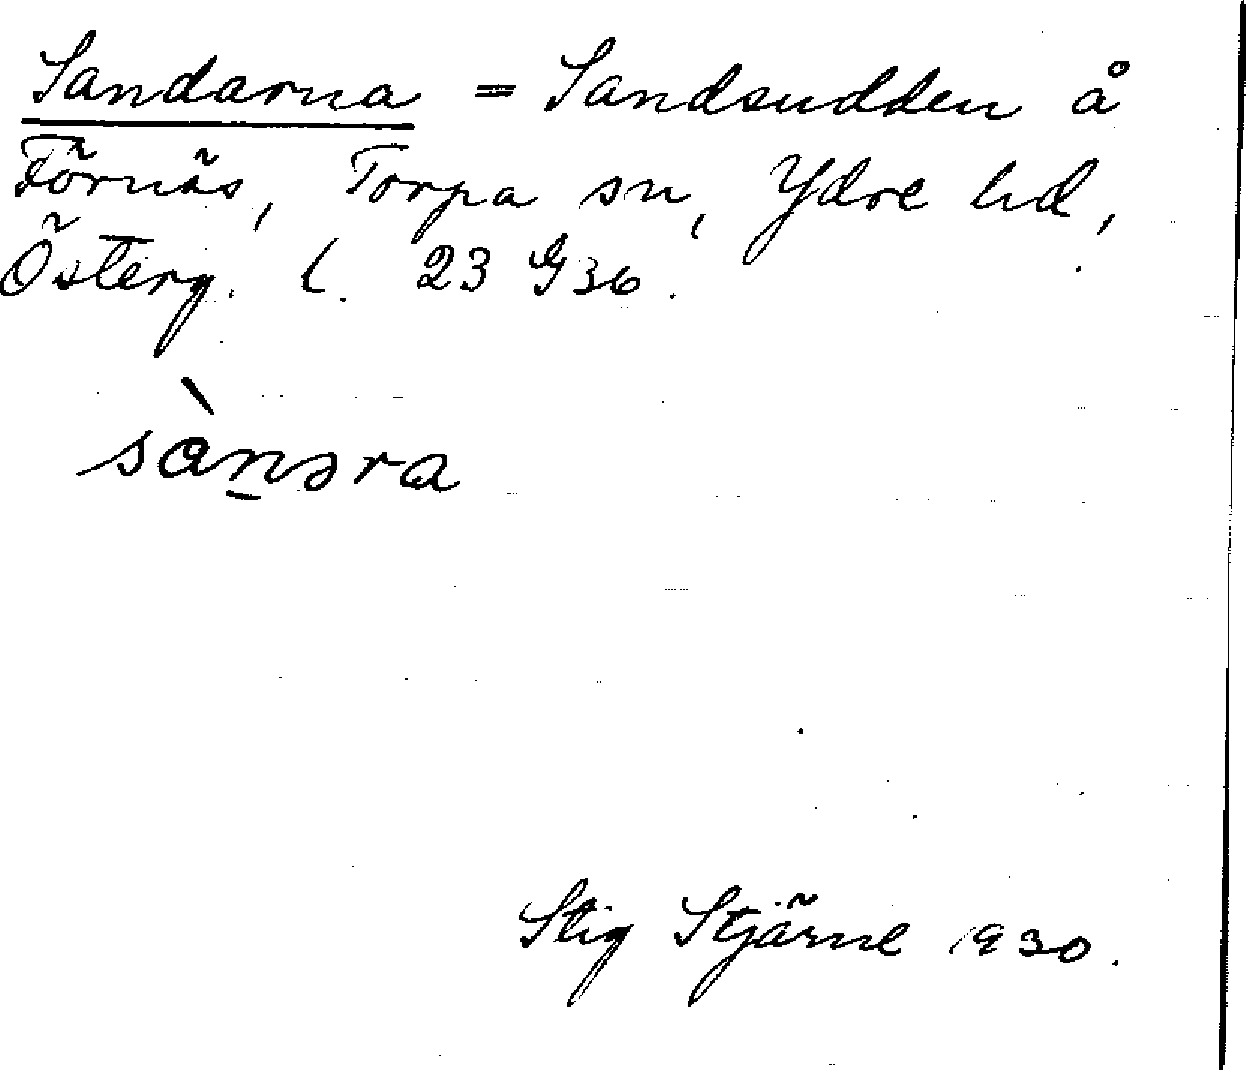 Sandarna = Sandsudden å
Förnäs, Torpa sn, Ydre hd,
Österg. l. 23 G 36.
sànəra
Stig Stjärne 1930.